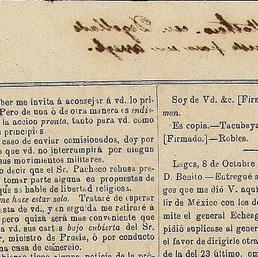 ber me invita á aconsejar á vd. lo pri-
Pero de una ó de otra manera es indis-
la accion pronta, tanto para vd. como
principal.
caso de enviar comisionados, doy por
que vd. no interrumpirá por ningun
sus movimientos militares.
o decir que el Sr. Pacheco rehusa pre-
tomar parte alguna en propuestas de
que se hable de libertad religiosa.
me hace estar solo. Trataré de espirar
esta de vd., y en seguida me retiraré á
pero quizá será mas conveniente que
á vd. sus cartas bajo cubierta del Sr.
r, ministro de Prusia, ó por conducto
una casa de comercio.
Soy de Vd. &c. [Firm
mon.
Es copia.—Tacubaya
[Firmado.]—Robles.
Lagos, 8 de Octubre
D. Benito.—Entregué á
gos que me dió V. aquí
lir de México con los de
mite el general Echeag
pidió suplicase al gener
el favor de dirigirle otra
de la del 23 último, om